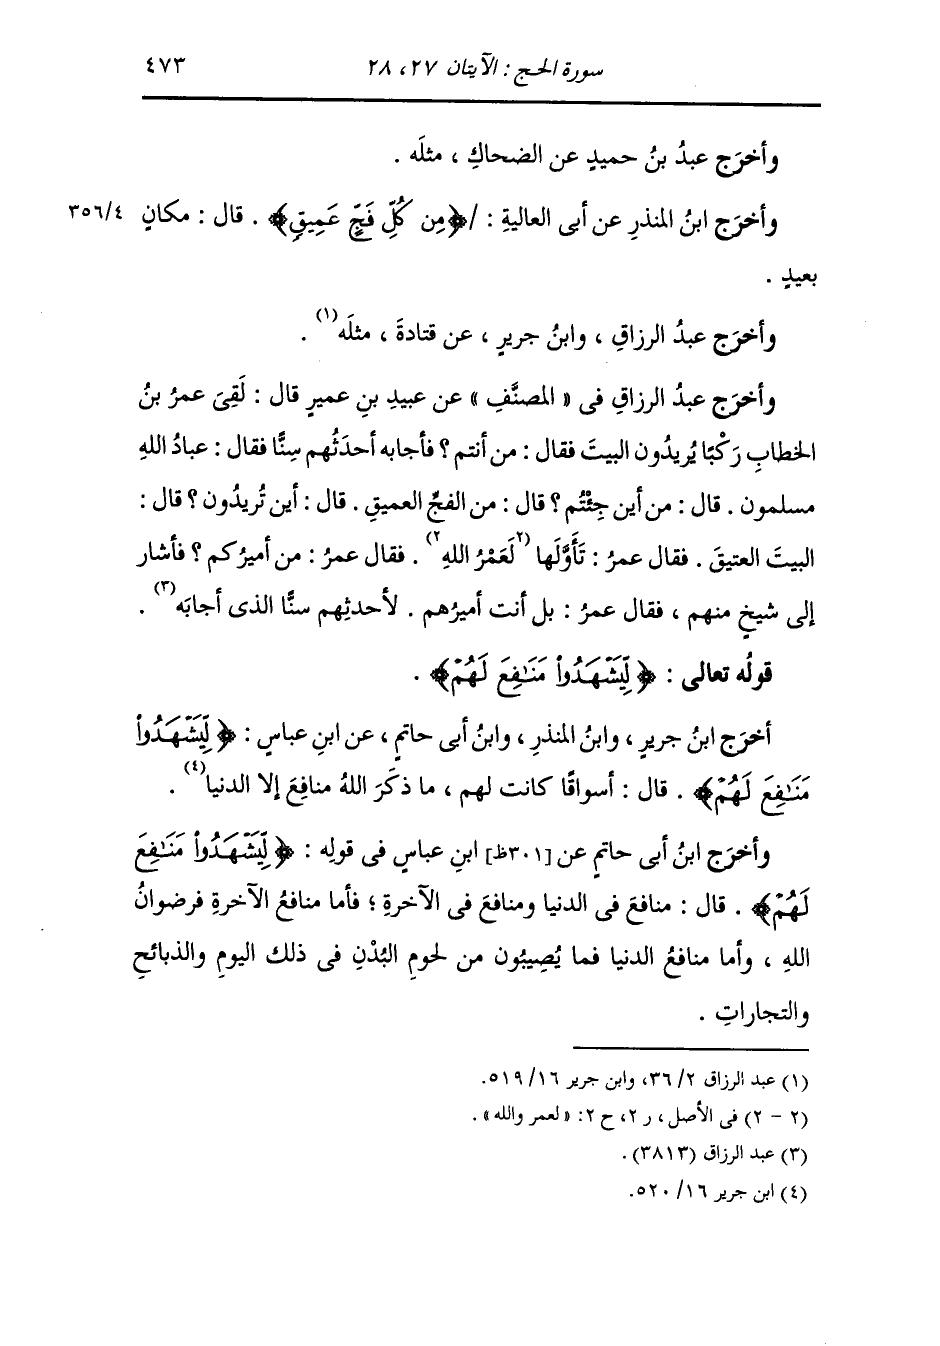 سورة الحج : الآيتان ٢٧، ٢٨ ٤٧٣
وأخرَج عبدُ بنُ حميدٍ عن الضحاكِ ، مثلَه .
وأخرَج ابنُ المنذرِ عن أبى العاليةِ : /﴿مِن كُلِّ فَجٍّ عَمِيقٍ﴾ . قال : مكانٍ ٣٥٦/٤
بعيدٍ .
وأخرَج عبدُ الرزاقِ ، وابنُ جريرٍ ، عن قتادةَ ، مثلَه(١) .
وأخرَج عبدُ الرزاقِ فى « المصنَّفِ » عن عبيدِ بنِ عميرٍ قال : لَقِىَ عمرُ بنُ
الخطابِ رَكْبًا يُريدُون البيتَ فقال : من أنتم ؟ فأجابه أحدَثُهم سِنًّا فقال : عبادُ اللهِ
مسلمون . قال : من أين جِئْتُم ؟ قال : من الفجِّ العميقِ . قال : أين تُريدُون ؟ قال :
البيتَ العتيقَ . فقال عمرُ : تَأَوَّلَها (٢لَعَمْرُ اللهِ٢) . فقال عمرُ : من أميرُكم ؟ فأشار
إلى شيخٍ منهم ، فقال عمرُ : بل أنت أميرُهم . لأحدثِهم سنًّا الذى أجابَه(٣) .
قولُه تعالى : ﴿ لِّيَشْهَدُواْ مَنَٰفِعَ لَهُمْ﴾ .
أخرَج ابنُ جريرٍ ، وابنُ المنذرِ ، وابنُ أبى حاتمٍ ، عن ابنِ عباسٍ : ﴿ لِّيَشْهَدُواْ
مَنَٰفِعَ لَهُمْ﴾ . قال : أسواقًا كانت لهم ، ما ذكَرَ اللهُ منافِعَ إلا الدنيا(٤) .
وأخرَج ابنُ أبى حاتمٍ عن [٣٠١ظ] ابنِ عباسٍ فى قولِه : ﴿ لِّيَشْهَدُواْ مَنَٰفِعَ
لَهُمْ﴾ . قال : منافعَ فى الدنيا ومنافعَ فى الآخرةِ ؛ فأما منافعُ الآخرةِ فرضوانُ
اللهِ ، وأما منافعُ الدنيا فما يُصِيبُون من لحومِ البُدْنِ فى ذلك اليومِ والذبائحِ
والتجاراتِ .
(١) عبد الرزاق ٢/ ٣٦، وابن جرير ١٦/ ٥١٩.
(٢ - ٢) فى الأصل، ر ٢، ح ٢: «لعمر والله» .
(٣) عبد الرزاق (٣٨١٣) .
(٤) ابن جرير ١٦/ ٥٢٠.